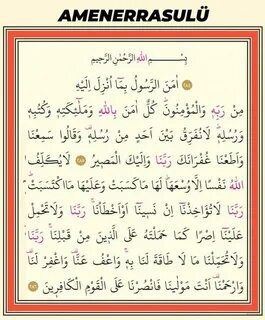 AMENERRASULÜ
بِسْمِ اللّٰهِ الرَّحْمٰنِ الرَّحٖيمِ
اٰمَنَ الرَّسُولُ بِمَٓا اُنْزِلَ اِلَيْهِ
مِنْ رَبِّهٖ وَالْمُؤْمِنُونَۜ كُلٌّ اٰمَنَ بِاللّٰهِ وَمَلٰٓئِكَتِهٖ وَكُتُبِهٖ
وَرُسُلِهٖۜ لَا نُفَرِّقُ بَيْنَ اَحَدٍ مِنْ رُسُلِهٖ۠ وَقَالُوا سَمِعْنَا
وَاَطَعْنَا غُفْرَانَكَ رَبَّنَا وَاِلَيْكَ الْمَصٖيرُ ﴿٢٨٥﴾ لَا يُكَلِّفُ
اللّٰهُ نَفْسًا اِلَّا وُسْعَهَاۜ لَهَا مَا كَسَبَتْ وَعَلَيْهَا مَا اكْتَسَبَتْۜ
رَبَّنَا لَا تُؤَاخِذْنَٓا اِنْ نَسٖينَٓا اَوْ اَخْطَأْنَاۚ رَبَّنَا وَلَا تَحْمِلْ
عَلَيْنَٓا اِصْرًا كَمَا حَمَلْتَهُ عَلَى الَّذٖينَ مِنْ قَبْلِنَاۚ رَبَّنَا
وَلَا تُحَمِّلْنَا مَا لَا طَاقَةَ لَنَا بِهٖۚ وَاعْفُ عَنَّا۠ وَاغْفِرْ لَنَا۠
وَارْحَمْنَا۠ اَنْتَ مَوْلٰينَا فَانْصُرْنَا عَلَى الْقَوْمِ الْكَافِرٖينَ ﴿٢٨٦﴾